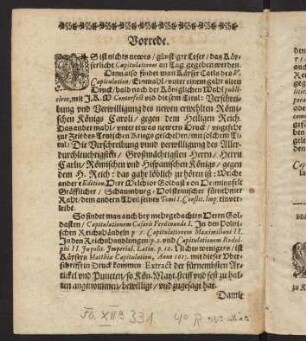 Vorrede.
ES ist nichts newes / günstiger Leser / das Käy-
serliche Capitulationes an Tag gegeben werden.
Dem also findet man Käyser Carls des V.
Capitulation / Einmahl / unter einem gahr alten
Druck / bald nach der Königlichen Wahl publi-
ciret, mit J. K. M. Conterfeit und diesem Titul: Verschrei-
bung und Verwilligung des newen erwehlten Römi-
schen Königs Caroli / gegen dem Heiligen Reich.
Das ander mahl / unter etwas newern Druck /
zur Zeit des Teutschen Kriegs geschehen: mit solchem Ti-
tul: Die Verschreibung unnd verwilligung des Aller-
durchleuchtigsten / Großmächtigsten Herrn / Herrn
Carln / Römischen und Hispanischen Königs / gegen
dem H. Reich: das gahr löblich zu hören ist: Welche
ander Edition Der Melchior Goldast von Heiminsfeld
Gräfflicher / Schaumburg: Holsteinischer fürnehmer
Raht / dem andern Theil seines Tomi I. Constit. Imp. einver-
leibet.
So findet man auch bey mehrgedachtem Herrn Gol-
dasten / Capitulationem Cæsaris Ferdinandi I. In den Politi-
schen Reichshändeln p. Capitulationem Maximiliani II.
In den Reichshandlungen p. und Capitulationem Rudol-
phi II.
Käysers Matthiæ Capitulation, Anno 1612. mit dieser Uber-
schrifft in Druck kommen: Extract der fürnembsten Ar-
ticul und Puncten / so Kön. Mayt. steiff und fest zu hal-
ten angenommen / bewilligt / und zugesagt hat.
Damit
331